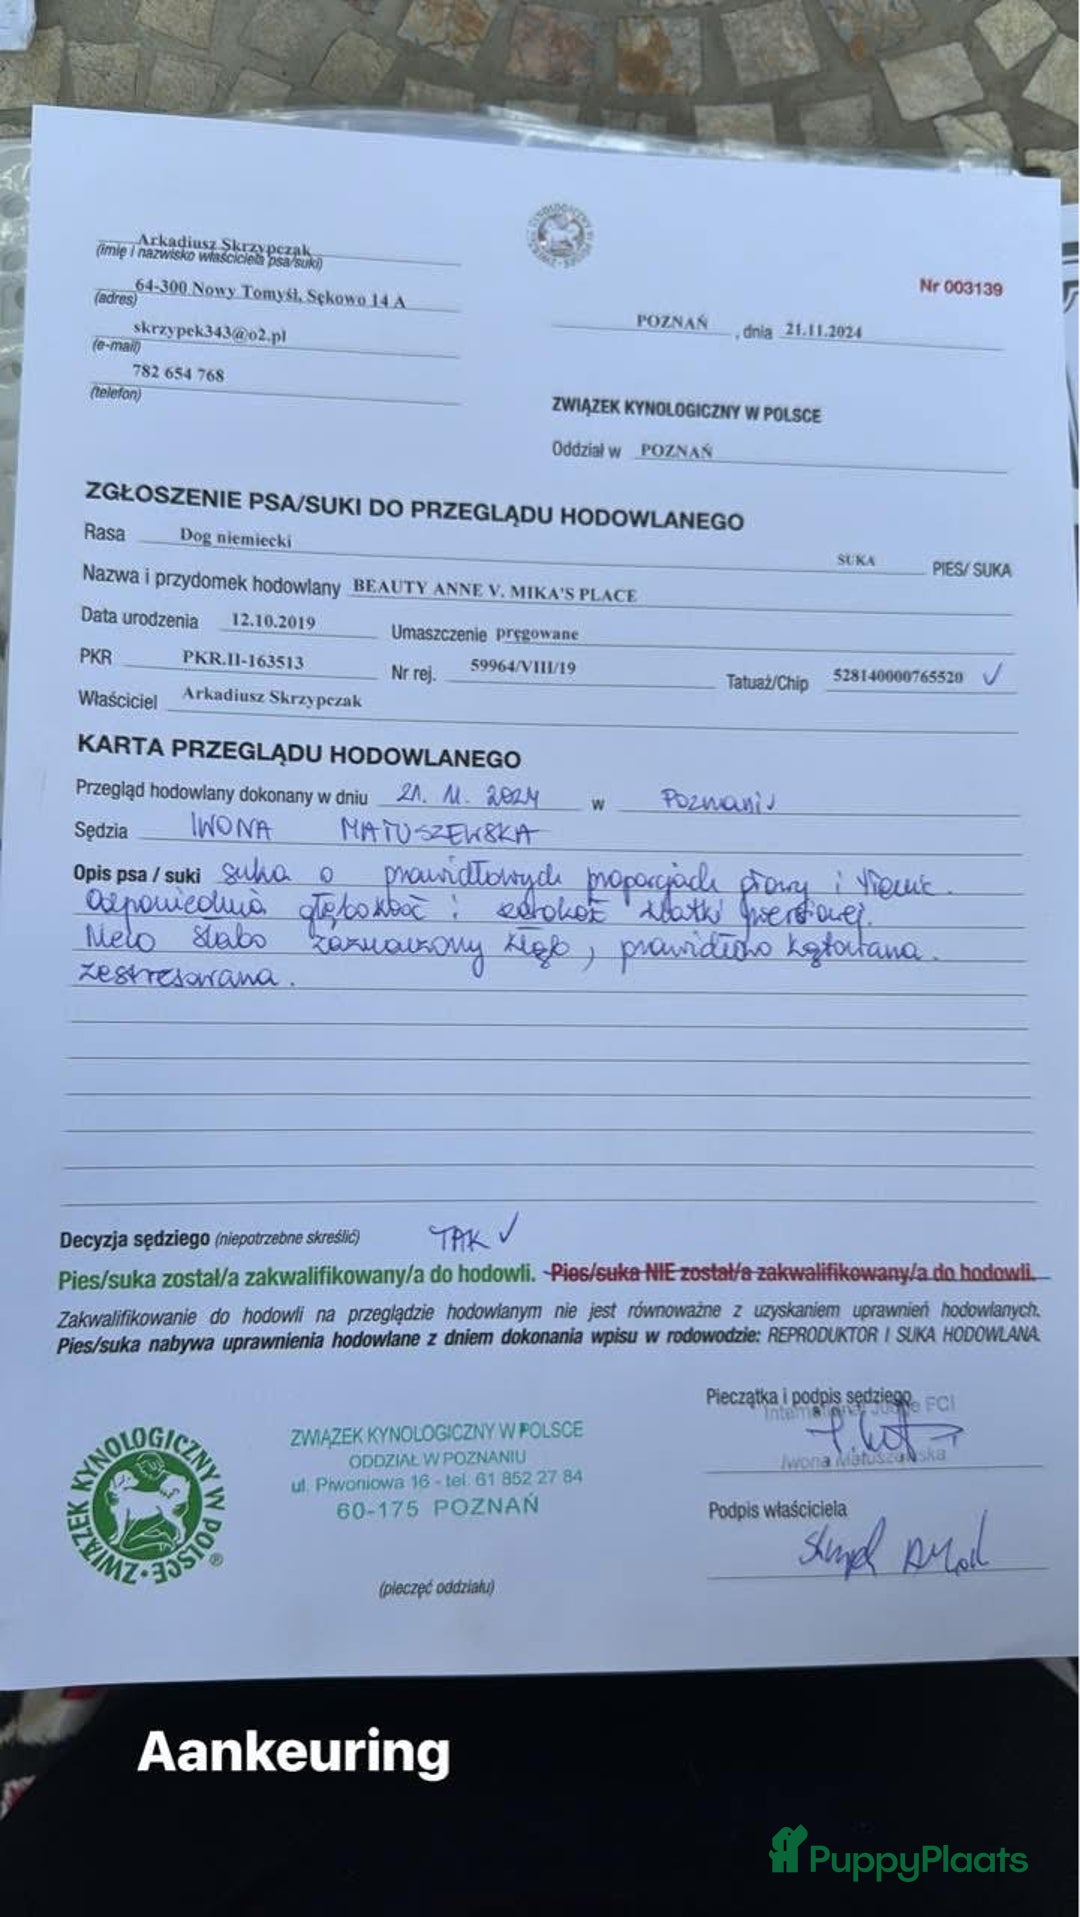 Arkadiusz Skrzypczak
(imię i nazwisko właściciela psa/suki)
64-300 Nowy Tomyśl, Sękowo 14 A
(adres)
Nr 003139
skrzypek343@o2.pl
(e-mail)
POZNAŃ, dnia 21.11.2024
782 654 768
(telefon)
ZWIĄZEK KYNOLOGICZNY W POLSCE
Oddział w POZNAŃ
ZGŁOSZENIE PSA/SUKI DO PRZEGLĄDU HODOWLANEGO
Rasa Dog niemiecki SUKA PIES/ SUKA
Nazwa i przydomek hodowlany BEAUTY ANNE V. MIKA'S PLACE
Data urodzenia 12.10.2019 Umaszczenie pręgowane
PKR PKR.II-163513 Nr rej. 59964/VIII/19 Tatuaż/Chip 528140000765520 ✓
Właściciel Arkadiusz Skrzypczak
KARTA PRZEGLĄDU HODOWLANEGO
Przegląd hodowlany dokonany w dniu 21. 11. 2024 w Poznaniu
Sędzia IWONA MATUSZEWSKA
Opis psa / suki suka o prawidłowych proporcjach głowy i
Odpowiednia głębokość i szerokość klatki piersiowej.
słabo zaznaczony kłąb, prawidłowo kątowana.
zestresowana.
Decyzja sędziego (niepotrzebne skreślić) TAK ✓
Pies/suka został/a zakwalifikowany/a do hodowli. Pies/suka NIE został/a zakwalifikowany/a do hodowli.
Zakwalifikowanie do hodowli na przeglądzie hodowlanym nie jest równoważne z uzyskaniem uprawnień hodowlanych.
Pies/suka nabywa uprawnienia hodowlane z dniem dokonania wpisu w rodowodzie: REPRODUKTOR I SUKA HODOWLANA.
Pieczątka i podpis sędziego
International Judge FCI
Iwona Matuszewska
ZWIĄZEK KYNOLOGICZNY W POLSCE
ODDZIAŁ W POZNANIU
ul. Piwoniowa 16 - tel. 61 852 27 84
60-175 POZNAŃ
ZWIĄZEK KYNOLOGICZNY W POLSCE ®
Podpis właściciela
(pieczęć oddziału)
Aankeuring
PuppyPlaats